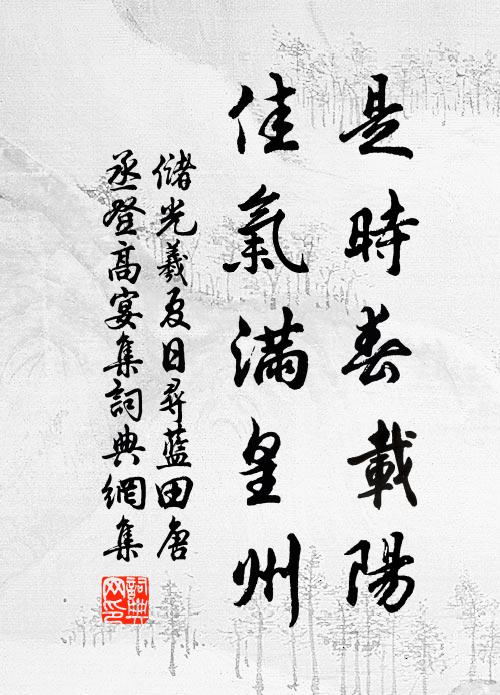 是時春載陽
佳氣滿皇州
儲光羲夏日尋藍田唐
丞登高宴集詞典網集